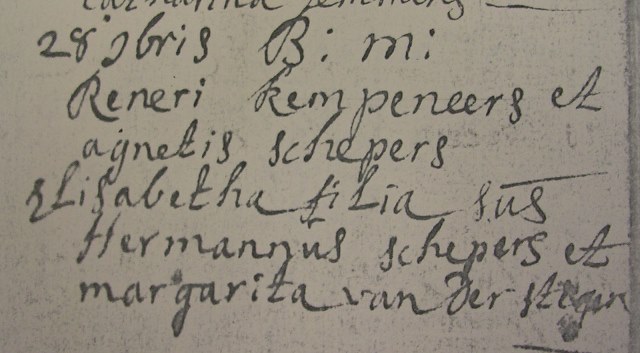 catharina jemmers
28 9bris B: m:
Reneri kempeneers et
agnetis schepers
Elisabetha filia sus
Hermannus schepers et
margarita van der